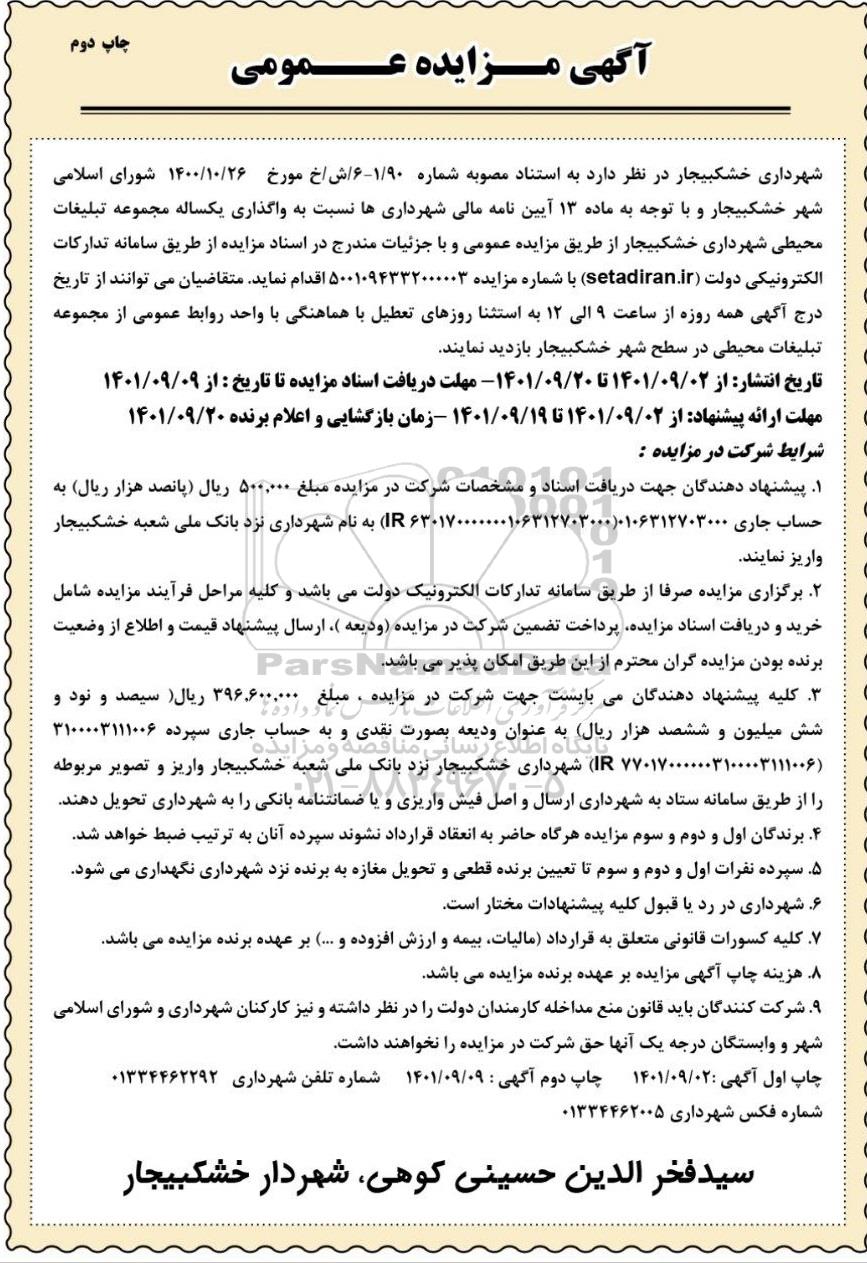 چاپ دوم
آگهی مـــزایده عـــمومی
شهرداری خشکبیجار در نظر دارد به استناد مصوبه شماره ۶-۱/۹۰/ش/خ مورخ ۱۴۰۰/۱۰/۲۶ شورای اسلامی
شهر خشکبیجار و با توجه به ماده ۱۳ آیین نامه مالی شهرداری ها نسبت به واگذاری یکساله مجموعه تبلیغات
محیطی شهرداری خشکبیجار از طریق مزایده عمومی و با جزئیات مندرج در اسناد مزایده از طریق سامانه تدارکات
الکترونیکی دولت (setadiran.ir) با شماره مزایده ۵۰۰۱۰۹۴۳۳۲۰۰۰۰۰۳ اقدام نماید. متقاضیان می توانند از تاریخ
درج آگهی همه روزه از ساعت ۹ الی ۱۲ به استثنا روزهای تعطیل با هماهنگی با واحد روابط عمومی از مجموعه
تبلیغات محیطی در سطح شهر خشکبیجار بازدید نمایند.
تاریخ انتشار: از ۱۴۰۱/۰۹/۰۲ تا ۱۴۰۱/۰۹/۲۰- مهلت دریافت اسناد مزایده تا تاریخ : از ۱۴۰۱/۰۹/۰۹
مهلت ارائه پیشنهاد: از ۱۴۰۱/۰۹/۰۲ تا ۱۴۰۱/۰۹/۱۹ -زمان بازگشایی و اعلام برنده ۱۴۰۱/۰۹/۲۰
شرایط شرکت در مزایده :
۱. پیشنهاد دهندگان جهت دریافت اسناد و مشخصات شرکت در مزایده مبلغ ۵۰۰,۰۰۰ ریال (پانصد هزار ریال) به
حساب جاری ۰۱۰۶۳۱۲۷۰۳۰۰۰(IR ۶۳۰۱۷۰۰۰۰۰۰۰۱۰۶۳۱۲۷۰۳۰۰۰) به نام شهرداری نزد بانک ملی شعبه خشکبیجار
واریز نمایند.
۲. برگزاری مزایده صرفا از طریق سامانه تدارکات الکترونیک دولت می باشد و کلیه مراحل فرآیند مزایده شامل
خرید و دریافت اسناد مزایده، پرداخت تضمین شرکت در مزایده (ودیعه )، ارسال پیشنهاد قیمت و اطلاع از وضعیت
برنده بودن مزایده گران محترم از این طریق امکان پذیر می باشد.
ParsNamadData
۳. کلیه پیشنهاد دهندگان می بایست جهت شرکت در مزایده ، مبلغ ۳۹۶,۶۰۰,۰۰۰ ریال( سیصد و نود و
شش میلیون و ششصد هزار ریال) به عنوان ودیعه بصورت نقدی و به حساب جاری سپرده ۳۱۰۰۰۰۳۱۱۱۰۰۶
پایگاه اطلاع رسانی مناقصه و مزایده
(IR ۷۷۰۱۷۰۰۰۰۰۰۳۱۰۰۰۰۳۱۱۱۰۰۶) شهرداری خشکبیجار نزد بانک ملی شعبه خشکبیجار واریز و تصویر مربوطه
۰۲۱-۸۸۳۴۹۶۷۰-۵
را از طریق سامانه ستاد به شهرداری ارسال و اصل فیش واریزی و یا ضمانتنامه بانکی را به شهرداری تحویل دهند.
۴. برندگان اول و دوم و سوم مزایده هرگاه حاضر به انعقاد قرارداد نشوند سپرده آنان به ترتیب ضبط خواهد شد.
۵. سپرده نفرات اول و دوم و سوم تا تعیین برنده قطعی و تحویل مغازه به برنده نزد شهرداری نگهداری می شود.
۶. شهرداری در رد یا قبول کلیه پیشنهادات مختار است.
۷. کلیه کسورات قانونی متعلق به قرارداد (مالیات، بیمه و ارزش افزوده و ...) بر عهده برنده مزایده می باشد.
۸. هزینه چاپ آگهی مزایده بر عهده برنده مزایده می باشد.
۹. شرکت کنندگان باید قانون منع مداخله کارمندان دولت را در نظر داشته و نیز کارکنان شهرداری و شورای اسلامی
شهر و وابستگان درجه یک آنها حق شرکت در مزایده را نخواهند داشت.
چاپ اول آگهی :۱۴۰۱/۰۹/۰۲ چاپ دوم آگهی : ۱۴۰۱/۰۹/۰۹ شماره تلفن شهرداری ۰۱۳۳۴۴۶۲۲۹۲
شماره فکس شهرداری ۰۱۳۳۴۴۶۲۰۰۵
سیدفخر الدین حسینی کوهی، شهردار خشکبیجار